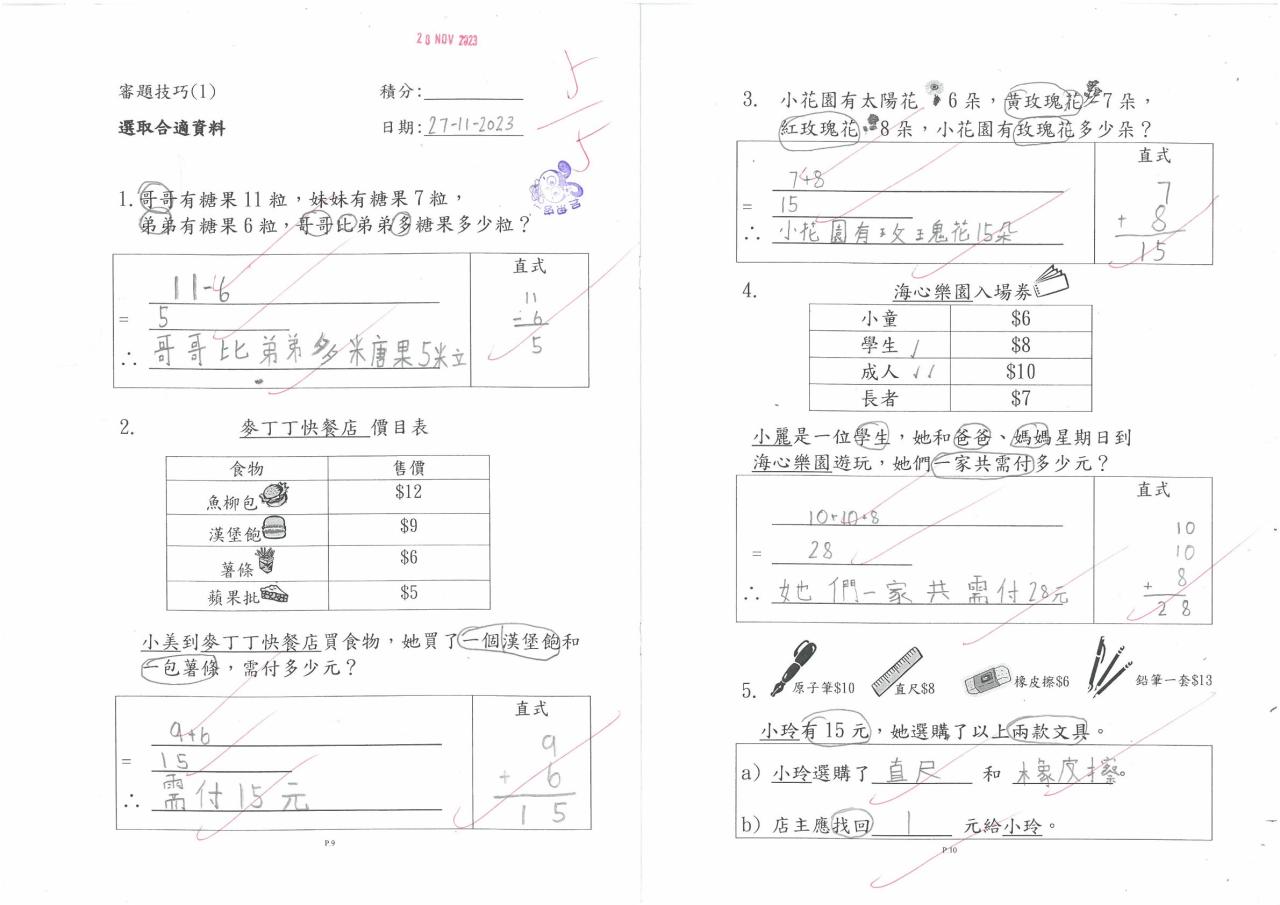 28 NOV 2023
審題技巧(1) 積分:
5
5
選取合適資料 日期: 27-11-2023
1. 哥哥有糖果 11 粒，妹妹有糖果 7 粒，
弟弟有糖果 6 粒，哥哥比弟弟多糖果多少粒？
直式
11-6
= 5
∴ 哥哥比弟弟多糖果5粒
11
- 6
5
2. 麥丁丁快餐店 價目表
食物 售價
魚柳包 $12
漢堡飽 $9
薯條 $6
蘋果批 $5
小美到麥丁丁快餐店買食物，她買了一個漢堡飽和
一包薯條，需付多少元？
直式
9+6
= 15
∴ 需付15元
9
+ 6
1 5
P.9
3. 小花園有太陽花 6 朵，黃玫瑰花 7 朵，
紅玫瑰花 8 朵，小花園有玫瑰花多少朵？
直式
7+8
= 15
∴ 小花園有玫瑰花15朵
7
+ 8
15
4. 海心樂園入場券
小童 $6
學生 $8
成人 $10
長者 $7
小麗是一位學生，她和爸爸、媽媽星期日到
海心樂園遊玩，她們一家共需付多少元？
直式
10+10+8
= 28
∴ 她們一家共需付28元
10
10
+ 8
2 8
5. 原子筆$10 直尺$8 橡皮擦$6 鉛筆一套$13
小玲有 15 元，她選購了以上兩款文具。
a) 小玲選購了 直尺 和 橡皮擦。
b) 店主應找回 1 元給小玲。
P.10